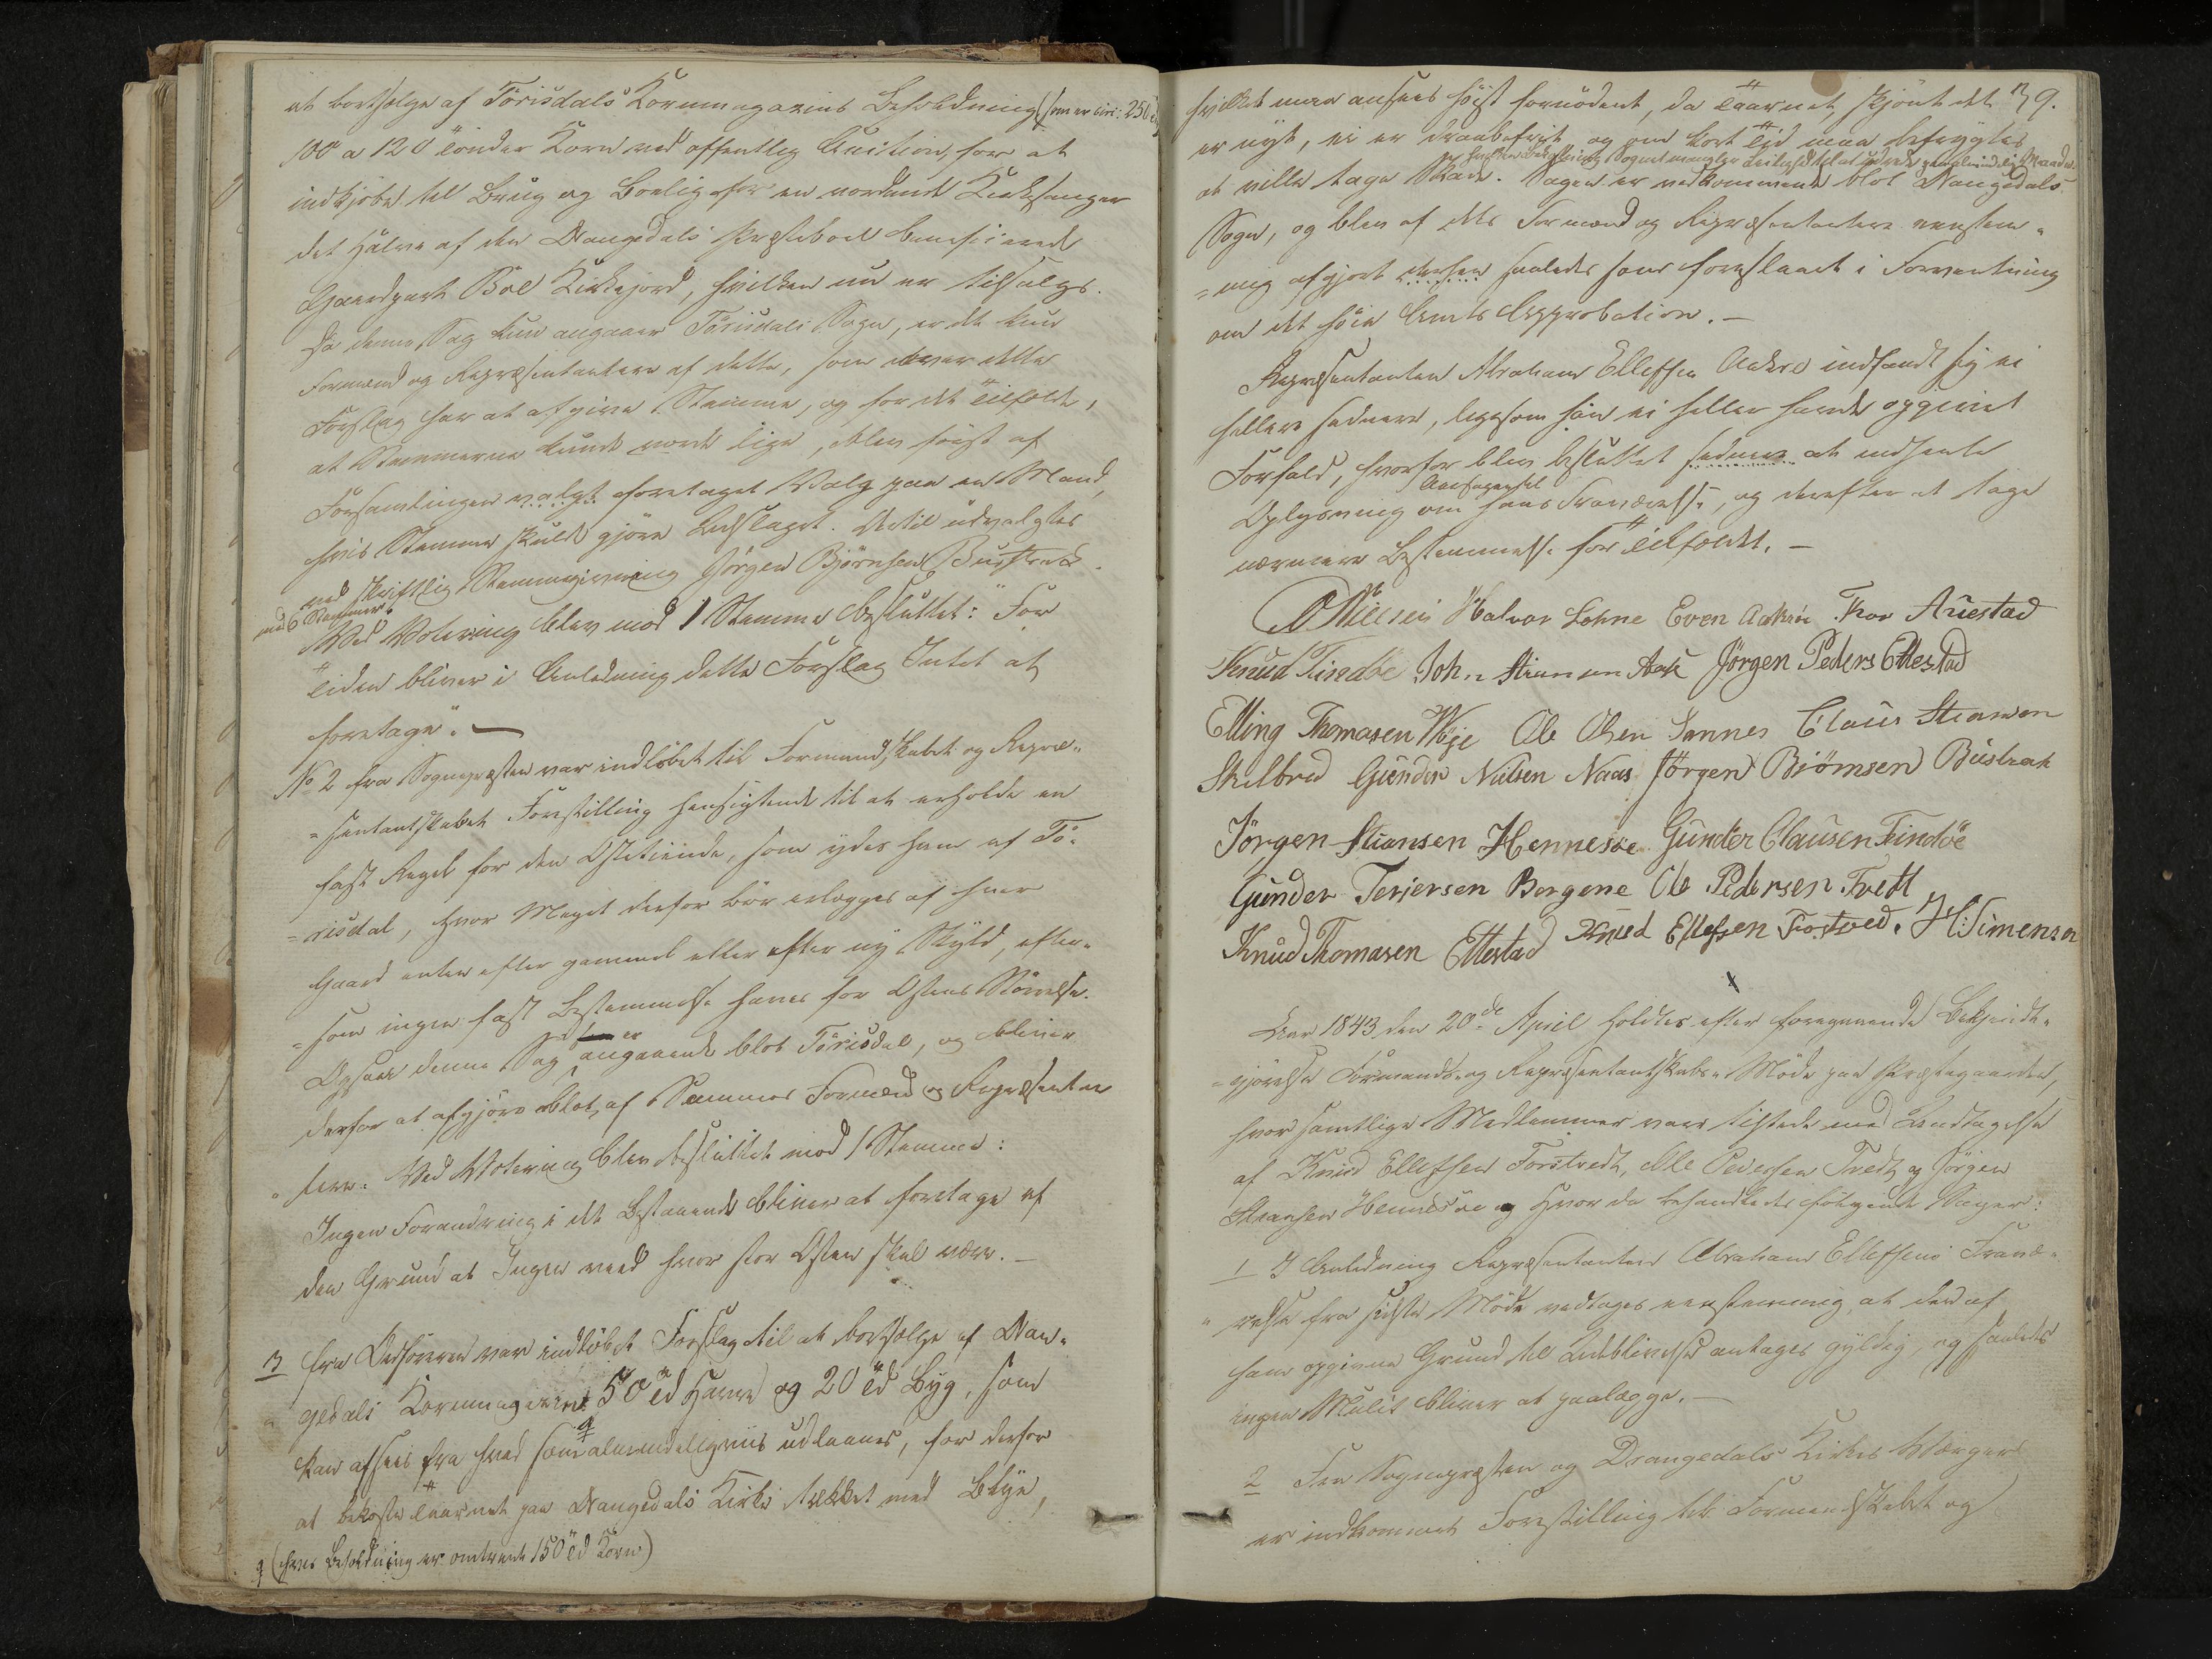 at bortsælge af Törisdals Kornmagazins Beholdning (som er circ: 250
100 a 120 Tönder Korn ved offentlig Auction, for at
indkjöbe til Brug og Bolig for en vordende Kirkesanger
det Halve af den Drangedals Præstebord beneficerede
Gaardpart Böe Kirkejord, hvilken nu er tilsalgs.
Da denne Sag kun angaaer Törisdals Sogn, er det kun
Formænd og Repræsentantere af dette, som over dette
Forslag har at afgive Stemme, og for det Tilfælde,
at Stemmerne kunde vorde lige, blev först af
Forsamlingen valgt foretaget Valg paa en Mand,
hvis Stemme skulde gjöre Udslaget. Dertil udvalgtes
ved skriftlig Stemmegivning Jörgen Björnsen Bustrak
med 6 Stemmer.
Ved Votering blev mod 1 Stemme besluttet: "For
Tiden bliver i Anledning dette Forslag Intet at
foretage". —
No 2 fra Sognepræsten var indlöbet til Formandskabet og Repræ-
sentantskabet Forestilling hensigtende til at erholde en
fast Regel for den Ostetiende, som ydes ham af Tö-
risdal, hvor Meget derfor bör erlægges af hver
Gaard enten efter gammel eller efter ny Skyld, efter-
som ingen fast Bestemmelse haves for Ostens Störrelse.
Ogsaa denne Sag er angaaende blot Törisdal, og bliver
derfor at afgjöre blot af Sammes Formænd og Repræsentan
tere. Ved Votering blev besluttet mod 1 Stemme:
Ingen Forandring i det Bestaaende bliver at foretage af
den Grund at Ingen veed hvor stor Osten skal være. —
3 fra Opsynet var indlöbet Forslag til at bortsælge af Dran-
gedals Kornmagazin 50 Td Havre og 20 Td Byg, som
kan afsees fra hvad som almindeligviis udlaanes, for derfor
at bekoste Taarnet paa Drangedals Kirke tækket med Blye,
(hvis Beholdning er omtrent 150 Td Korn)
39.
hvilket maa ansees höist fornödent, da Taarnet, skjönt det
er nyt, ei er draabefrit og om kort Tid maa befrygtes
at ville tage Skade. Sagen er vedkommende blot Drangedals
Sogn, og blev af dets Formænd og Repræsentantere eenstem-
mig afgjort saaledes som foreslaaet i Forventning
om det höie Amts Approbation. —
Repræsentanten Abraham Ellefsen Aakre indfandt sig ei
heller sednere, ligesom han ei heller havde opgivet
Forfald, hvorfor blev besluttet sednere at indhente
Oplysning om Aarsagen til hans Fraværelse, og derefter at tage
nærmere Bestemmelse for Tilfældet. —
Nielsen Halvor Lohne Even Aakre Thor Auestad
Knud Tindöe Joh. Stiansen Aase Jörgen Peders Ettestad
Elling Thomasen Wöje Ole Olsen Sannes Claus Stiansen
Skelbred Gunder Nielsen Naas Jörgen Biörnsen Büstrak
Jörgen Stiansen Hennesöe Gunder Clausen Tindöe
Gunder Terjersen Borgene Ole Pedersen Tvett
Knud Thomasen Ettestad Knud Ellefsen Fostved. H: Simensen
Aar 1843 den 20de April holdtes efter foregaaende Bekjendt-
gjörelse Formands- og Repræsentantskabs-Möde paa Præstegaarden,
hvor samtlige Medlemmer vare tilstede med Undtagelse
af Knud Ellefsen Forstvedt, Ole Pedersen Tvedt og Jörgen
Stiansen Hennesöe og hvor da behandledes fölgende Sager:
1 I Anledning Repræsentanten Abraham Ellefsens Fravæ-
relse fra sidste Möde vedtages eenstemmig at den af
ham opgivne Grund til Udeblivelse antages gyldig, og saaledes
ingen Mulct bliver at paalægge. —
2 Fra Sognepræsten og Drangedals Kirkes Værger
er indkommet Forestilling til Formandskabet og